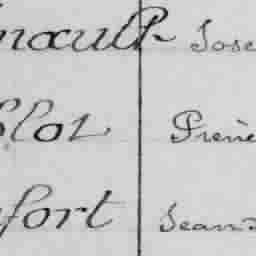 inault Jose
Blot Irène
fort Jean